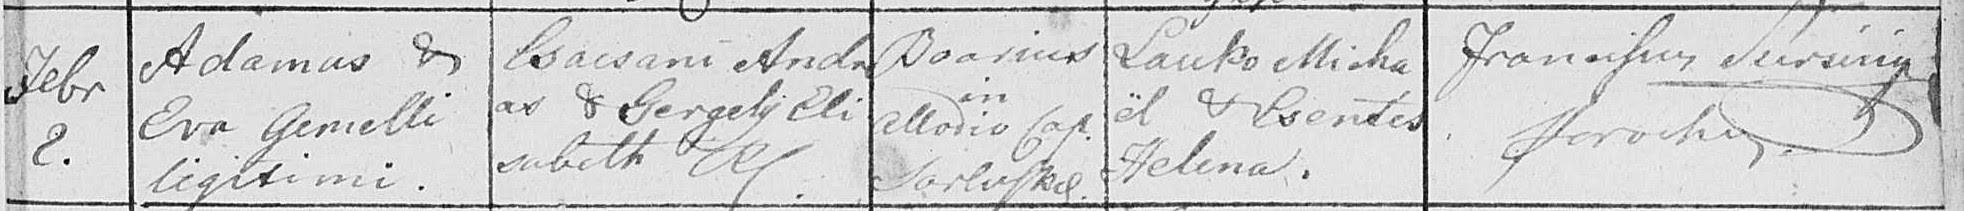 Febr
2.
Adamus &
Eva Gemelli
ligitimi.
Csacsani Andre
as & Gergely Eli
sabeth
Boarius
in
allodio Cap.
Sarluska
Lauko Micha
ël & Csentes
Helena.
Franciscus
Parochus